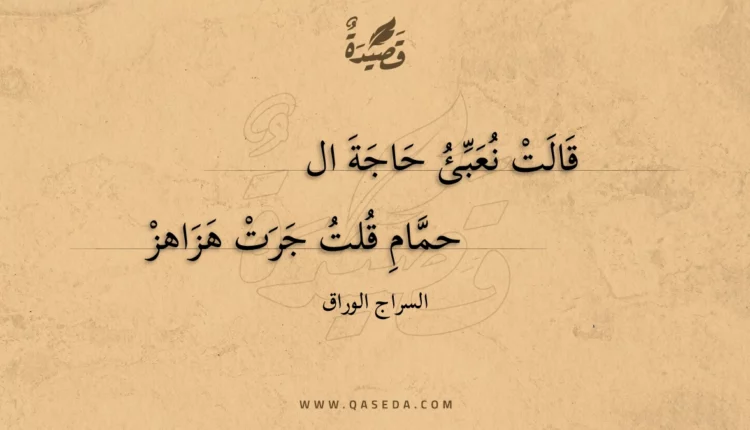 قَصِيدَةٌ
قَالَتْ نُعَبِّئُ حَاجَةَ ال
حمَّامِ قُلتُ جَرَتْ هَزَاهزْ
السراج الوراق
WWW.QASEDA.COM